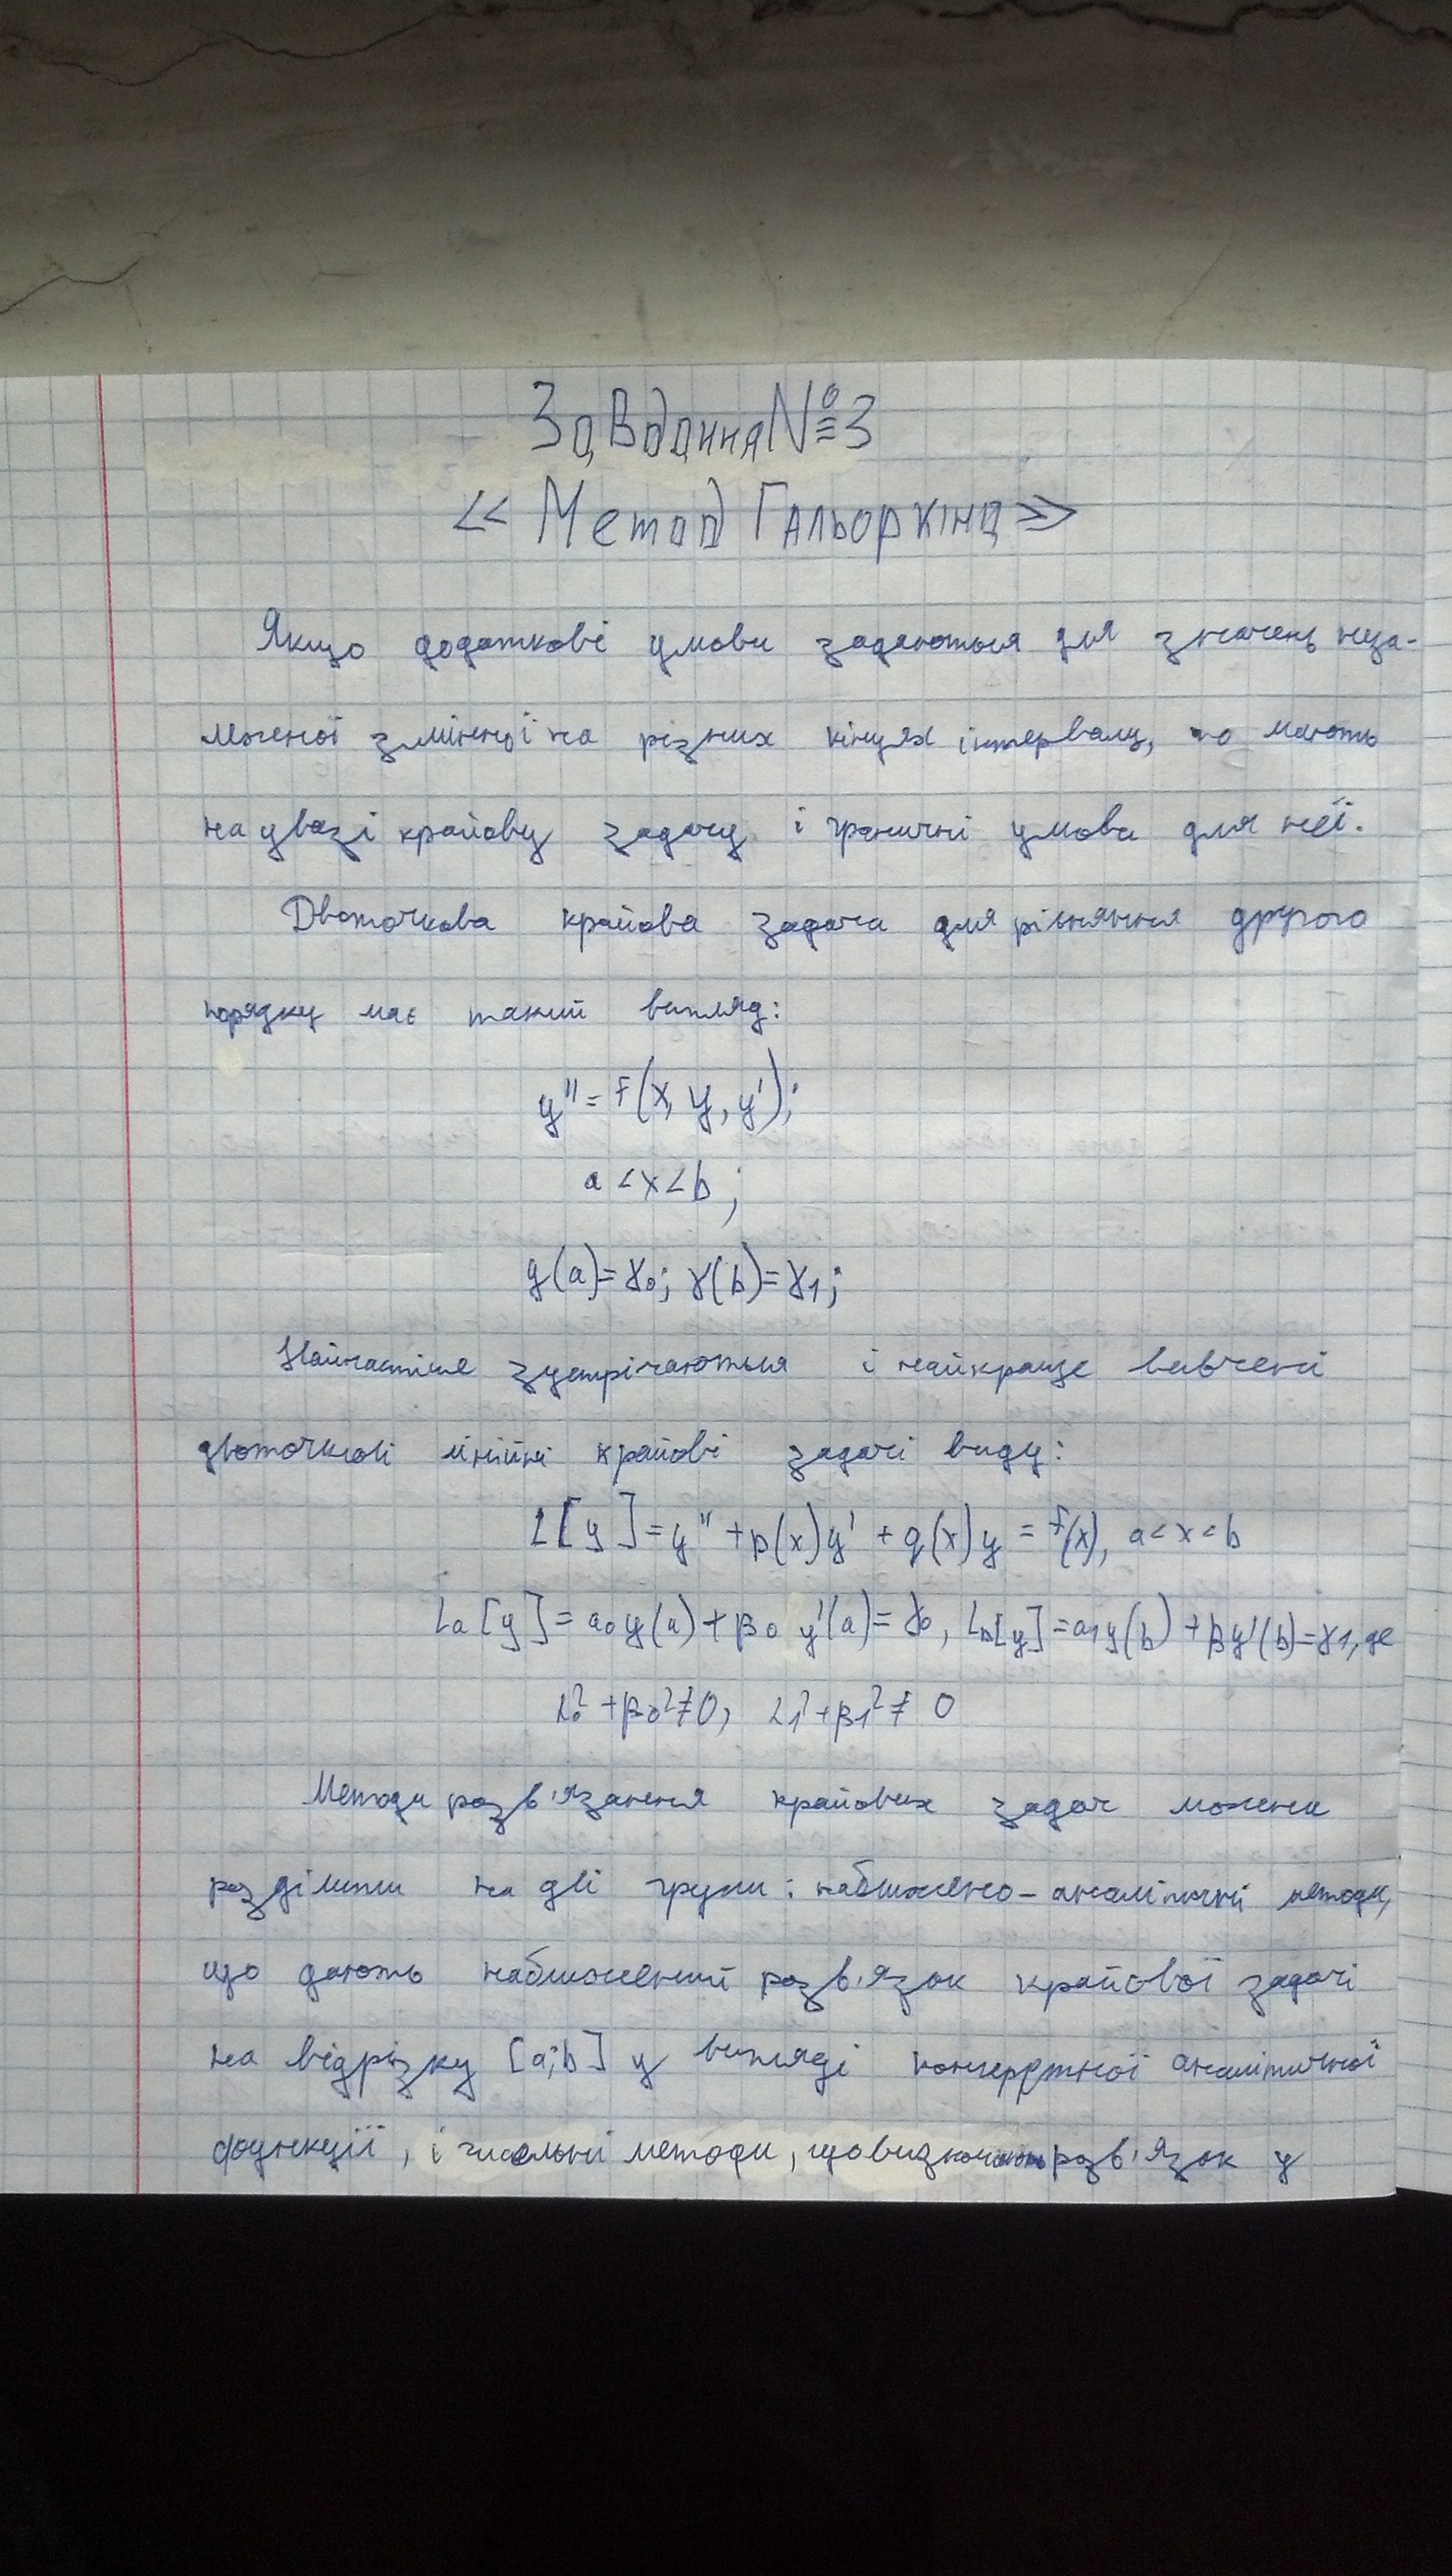 Завдання №3
<< Метод Гальоркіна >>
Якщо додаткові умови задаються для значень неза-
лежної змінної на різних кінцях інтервалу, то мають
на увазі крайову задачу і граничні умови для неї.
Двоточкова крайова задача для рівняння другого
порядку має такий вигляд:
y'' = f(x, y, y');
a < x < b ;
y(a) = γ0; γ(b) = γ1;
Найчастіше зустрічаються і найкраще вивчені
двоточкові лінійні крайові задачі виду:
L[y] = y'' + p(x)y' + q(x)y = f(x), a < x < b
La[y] = a0y(a) + β0 y'(a) = γ0, Lb[y] = a1y(b) + βy'(b) = γ1, де
α0² + β0² ≠ 0, α1² + β1² ≠ 0
Методи розв'язання крайових задач можна
розділити на дві групи: наближено-аналітичні методи,
що дають наближений розв'язок крайової задачі
на відрізку [a;b] у вигляді конкретної аналітичної
функції, і чисельні методи, що визначають розв'язок у